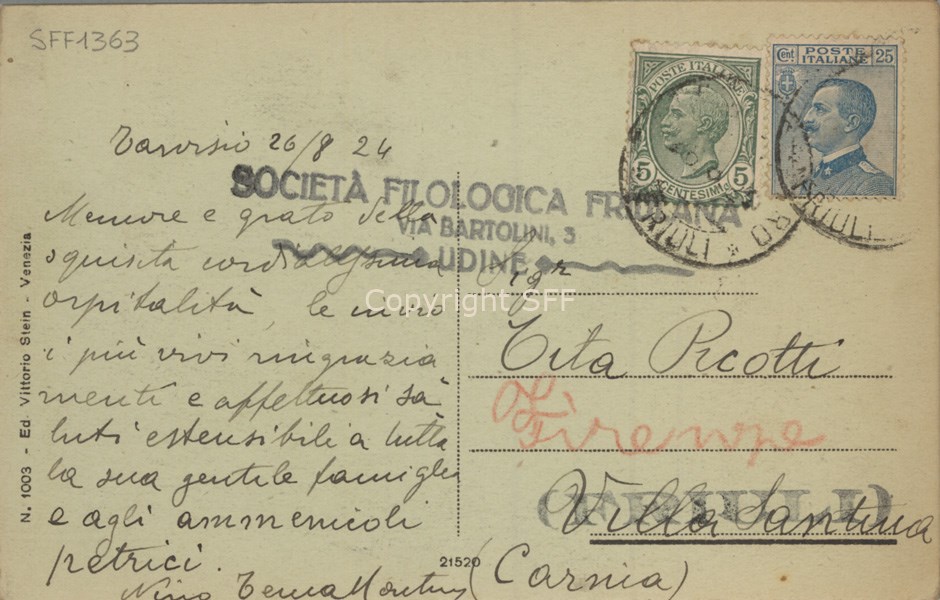 SFF1363
POSTE ITALIANE
5 5
CENTESIMI
Cent. POSTE ITALIANE 25
FRIULI
Tarvisio 26/8 24
SOCIETÀ FILOLOGICA FRIULANA
VIA BARTOLINI, 3
UDINE
Memore e grato della
squisita cordialissima
ospitalità, le invio
i più vivi ringrazia
menti e affettuosi sa
luti estensibili a tutta
la sua gentile famiglia
e agli ammenicoli
petrici.
Nino
Sigr
Tita Picotti
Firenze
(FRIULI)
Villa Santina
(Carnia)
21520
N. 1003 - Ed. Vittorio Stein - Venezia
Copyright SFF